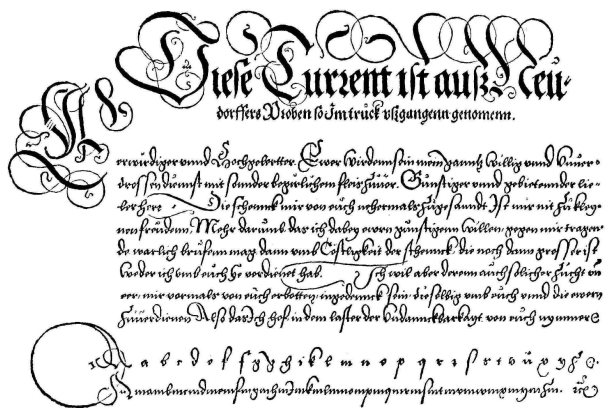 Diese Current ist auß Neu-
dorffers Proben so Im truck vßgangenn genomenn.
Erwürdiger vnnd Hochgeborter. Ewer wirden sein mein ganntz willig vnnd Vnuer-
drossen dienst mit sonder begirlichem fleis zuuor. Günstiger vnnd gebietennder lie-
ber herr. Die schennck mir von euch nehermals zugesandt. Ist mir nit zu kleynen
nen freuden. Mehr darumb das ich dabey ewrn günstigenn willen gegen mir tragen-
de warlich brüfem mag dann vmb Cöstligkeit der schennck die noch dann grosser ist
weder ich vmb euch he verdienet hab. Ich wil aber derenn auch solicher zucht vn
eer mir vormals von euch erbotten ingedennck sein die selbig vmb euch vnnd die ewern
zuuerdienen Also das Ich hof in dem laster der vndannckbarkayt von euch nymmer
a b c d e f f g g h i k l m n o p q r r s s t v w ü x y z